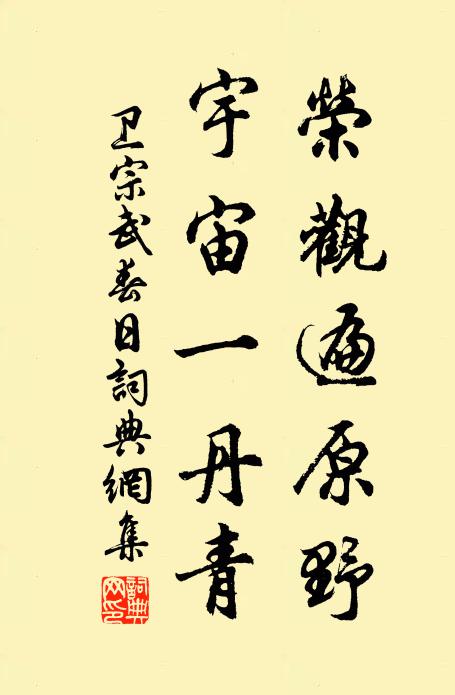 榮觀遍原野
宇宙一丹青
卫宗武春日詞典網集
詞典網印